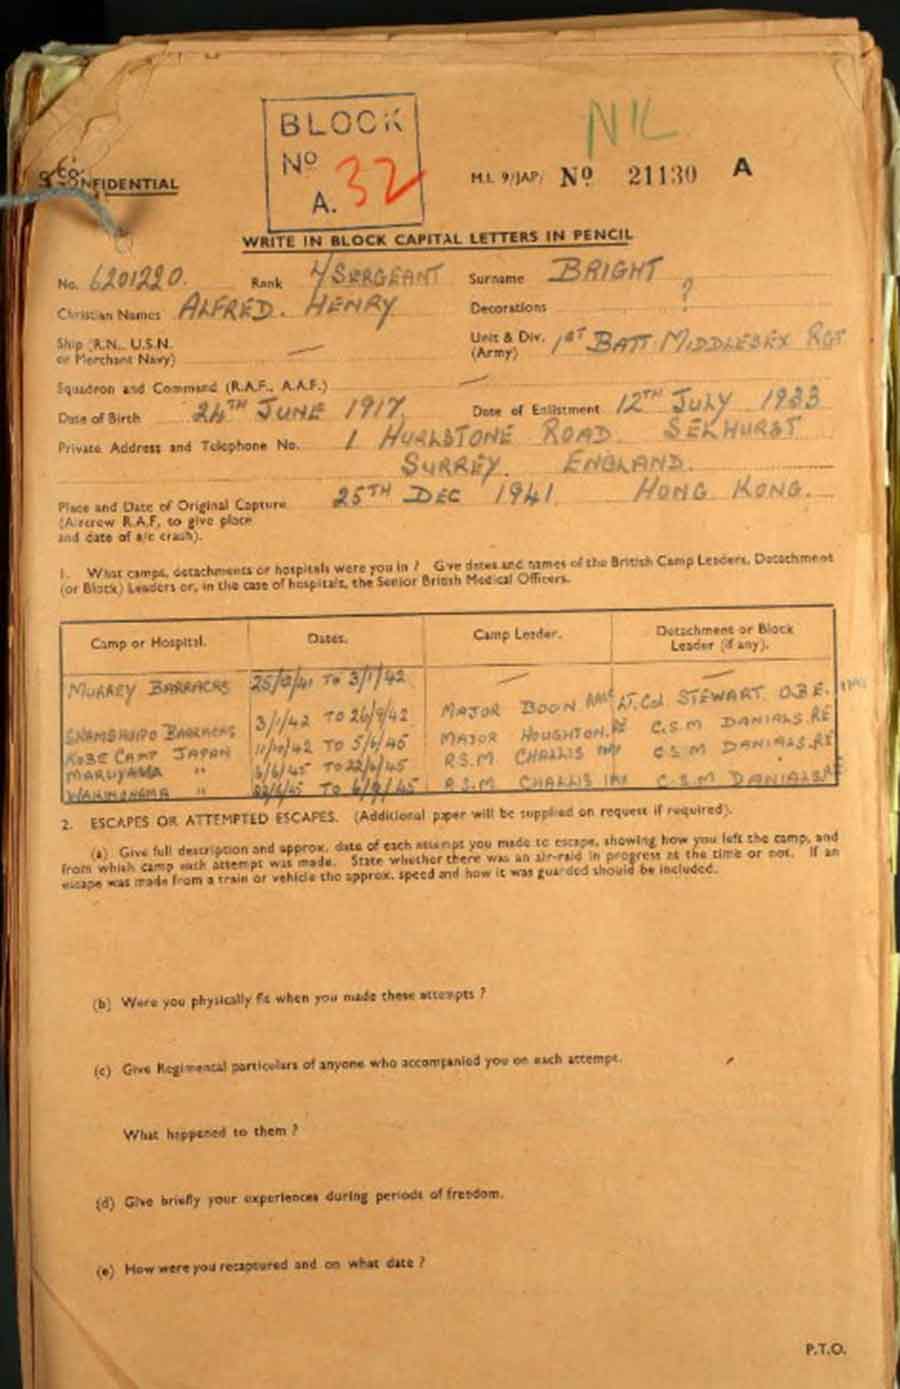 BLOCK
Nº
A. 32
NIL
CONFIDENTIAL
M.I. 9/JAP/ Nº 21130 A
WRITE IN BLOCK CAPITAL LETTERS IN PENCIL
No. 6201220. Rank L/SERGEANT Surname BRIGHT
Christian Names ALFRED. HENRY Decorations ?
Ship (R.N., U.S.N. or Merchant Navy) —
Unit & Div. (Army) 1ST BATT MIDDLESEX RGT
Squadron and Command (R.A.F., A.A.F.) —
Date of Birth 24TH JUNE 1917. Date of Enlistment 12TH JULY 1933
Private Address and Telephone No. 1 HURLSTONE ROAD SELHURST
SURREY. ENGLAND.
Place and Date of Original Capture 25TH DEC 1941. HONG KONG.
(Aircrew R.A.F. to give place
and date of a/c crash).
1. What camps, detachments or hospitals were you in ? Give dates and names of the British Camp Leaders, Detachment
(or Block) Leaders or, in the case of hospitals, the Senior British Medical Officers.
Camp or Hospital. Dates. Camp Leader. Detachment or Block Leader (if any).
MURREY BARRACKS 25/12/41 TO 3/1/42 — —
SHAMSHUIPO BARRACKS 3/1/42 TO 26/9/42 MAJOR BOON LT. COL STEWART O.B.E.
KOBE CAMP JAPAN 11/10/42 TO 5/6/45 MAJOR HOUGHTON. RE C.S.M DANIALS. RE
MARUYAMA " 6/6/45 TO 22/6/45 R.S.M CHALLIS C.S.M DANIALS. RE
WAKINOHAMA " 22/6/45 TO 6/9/45 R.S.M CHALLIS C.S.M DANIALS RE
2. ESCAPES OR ATTEMPTED ESCAPES. (Additional paper will be supplied on request if required).
(a) Give full description and approx. date of each attempt you made to escape, showing how you left the camp, and
from which camp each attempt was made. State whether there was an air-raid in progress at the time or not. If an
escape was made from a train or vehicle the approx. speed and how it was guarded should be included.
(b) Were you physically fit when you made these attempts ?
(c) Give Regimental particulars of anyone who accompanied you on each attempt.
What happened to them ?
(d) Give briefly your experiences during periods of freedom.
(e) How were you recaptured and on what date ?
P.T.O.